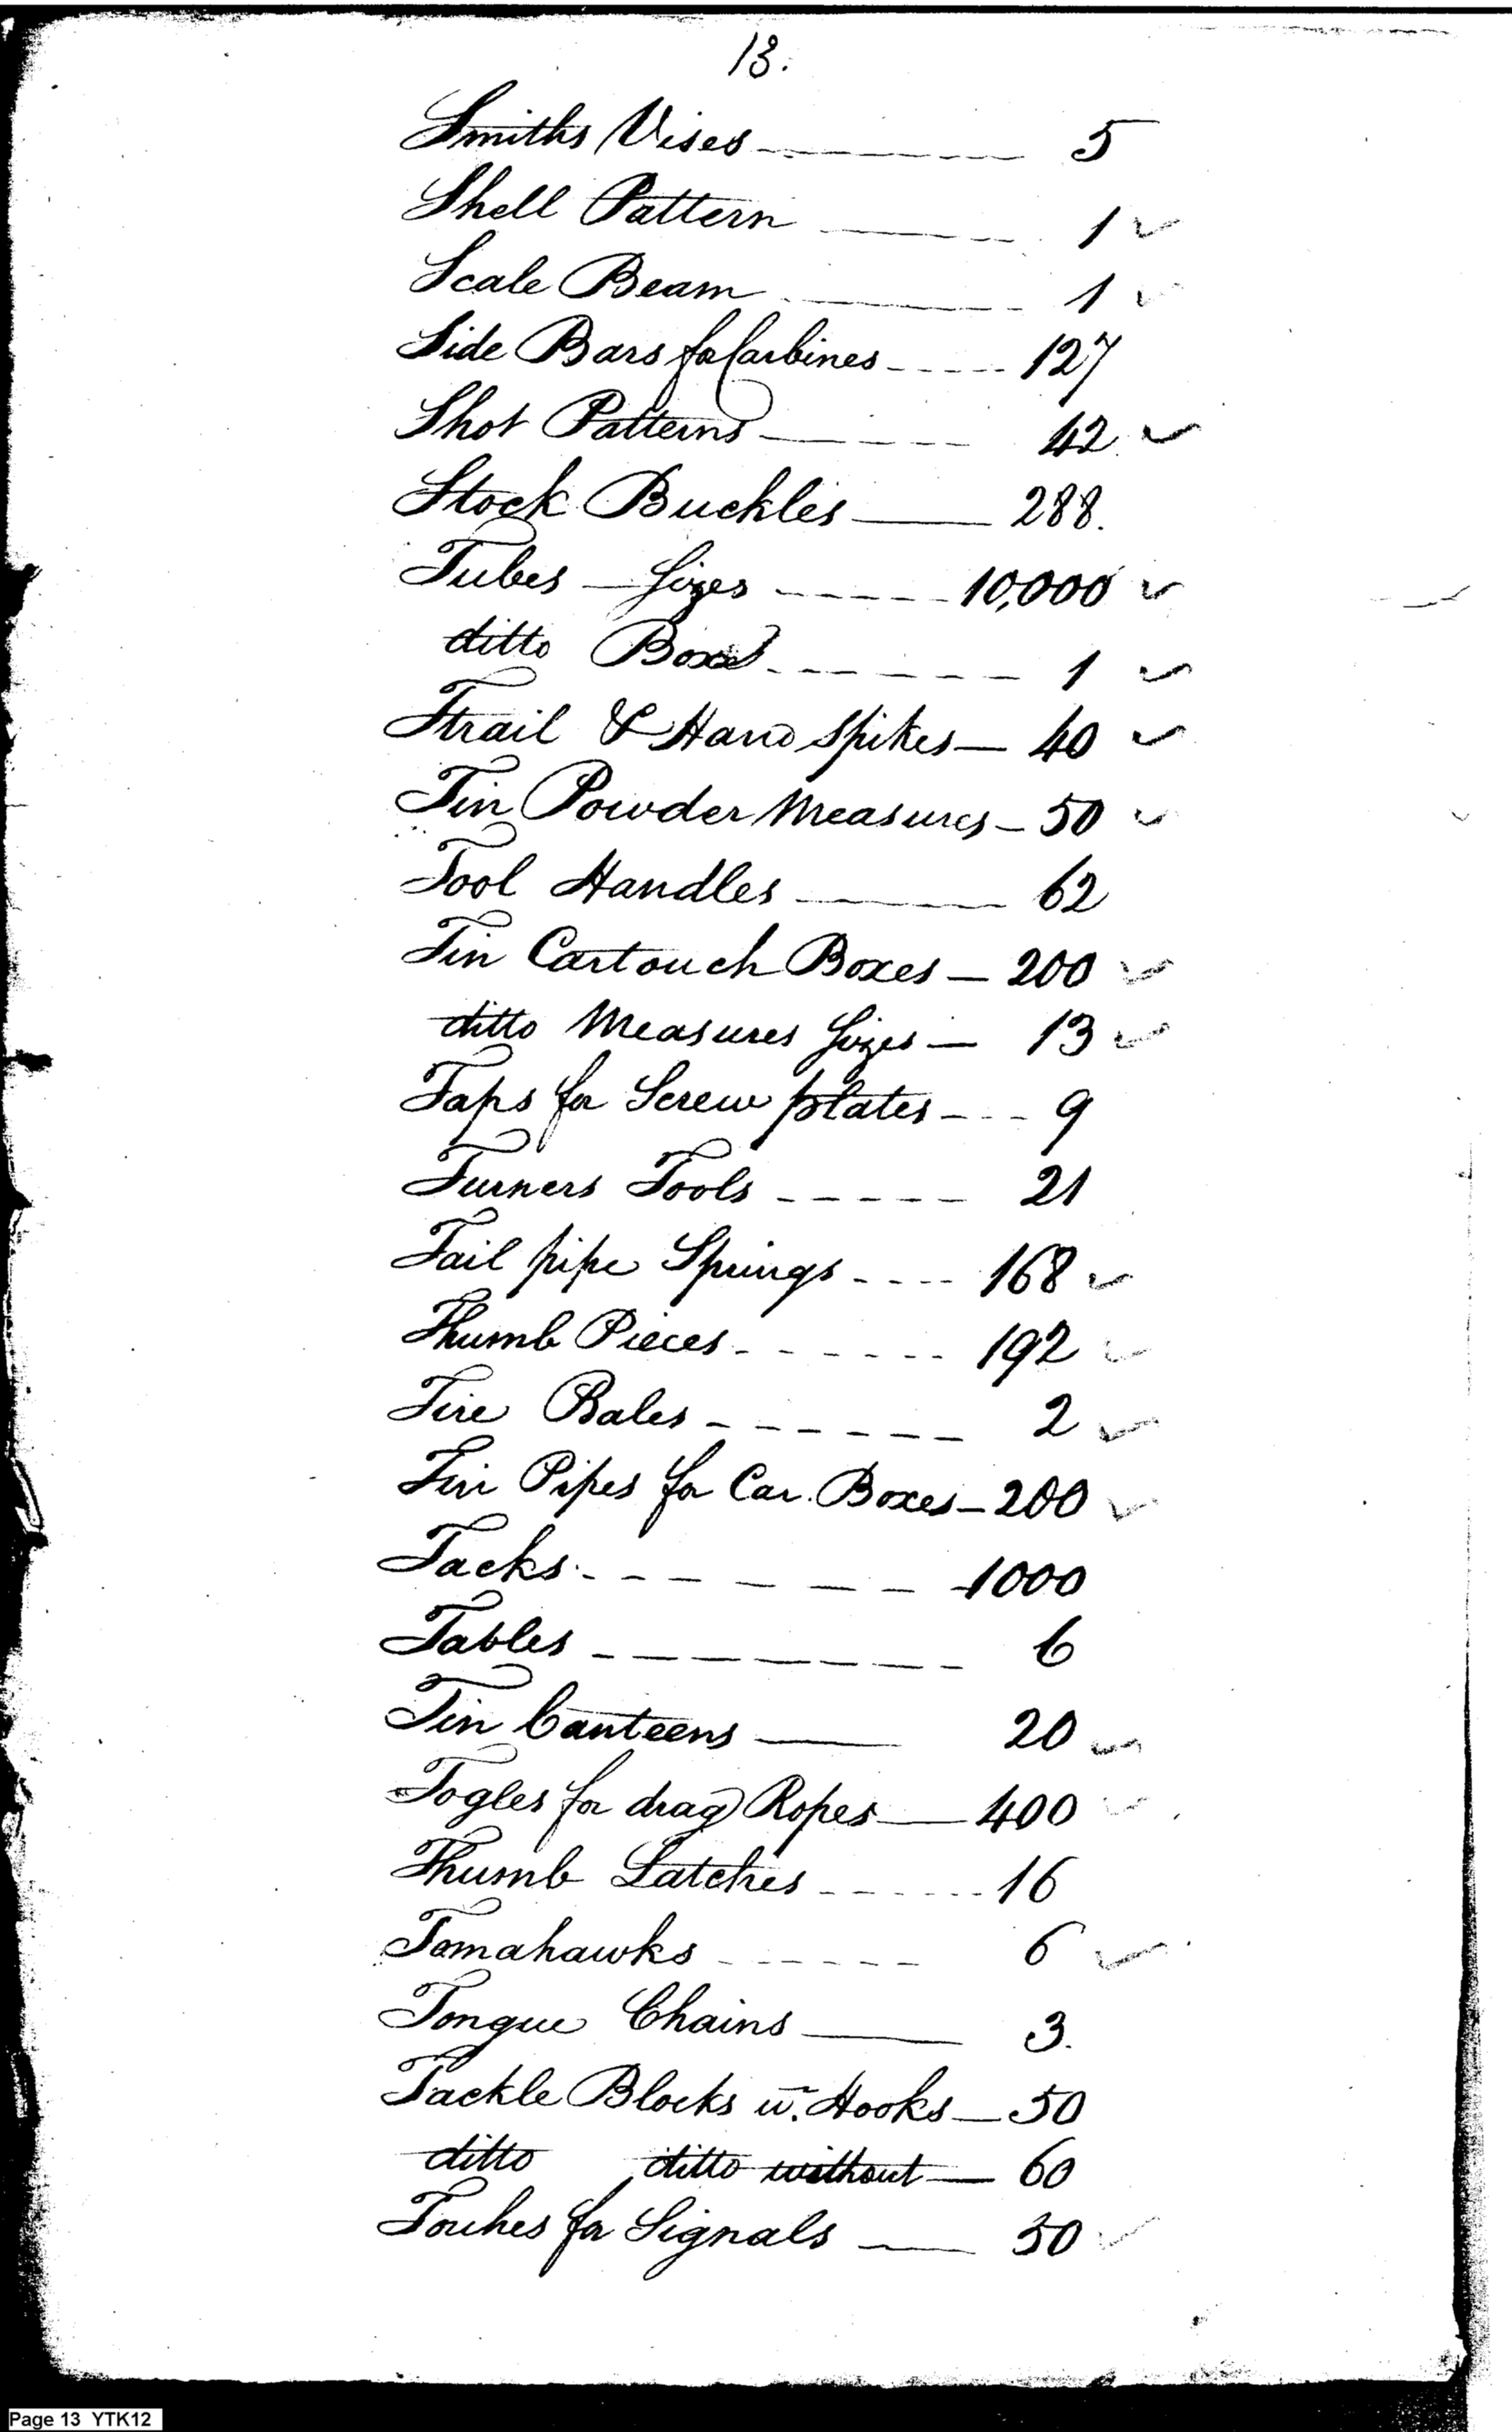 13.
Smiths Vises 5
Shell Pattern 1 ✓
Scale Beam 1 ✓
Side Bars for Carbines 127
Shot Patterns 42 ✓
Stock Buckles 288.
Tubes — Sizes 10,000 ✓
ditto Box 1 ✓
Trail & Hand Spikes — 40 ✓
Tin Powder Measures — 50 ✓
Tool Handles 62
Tin Cartouch Boxes — 200 ✓
ditto Measures Sizes — 13 ✓
Taps for Screw plates 9
Turners Tools 21
Tail pipe Springs 168 ✓
Thumb Pieces 192 ✓
Tire Bales 2 ✓
Tin Pipes for Car. Boxes — 200 ✓
Tacks 1000
Tables 6
Tin Canteens 20 ✓
Togles for drag Ropes — 400 ✓
Thumb Latches 16
Tomahawks 6 ✓
Tongue Chains 3.
Tackle Blocks w. Hooks — 50
ditto ditto without — 60
Touches for Signals 50 ✓
Page 13 YTK12